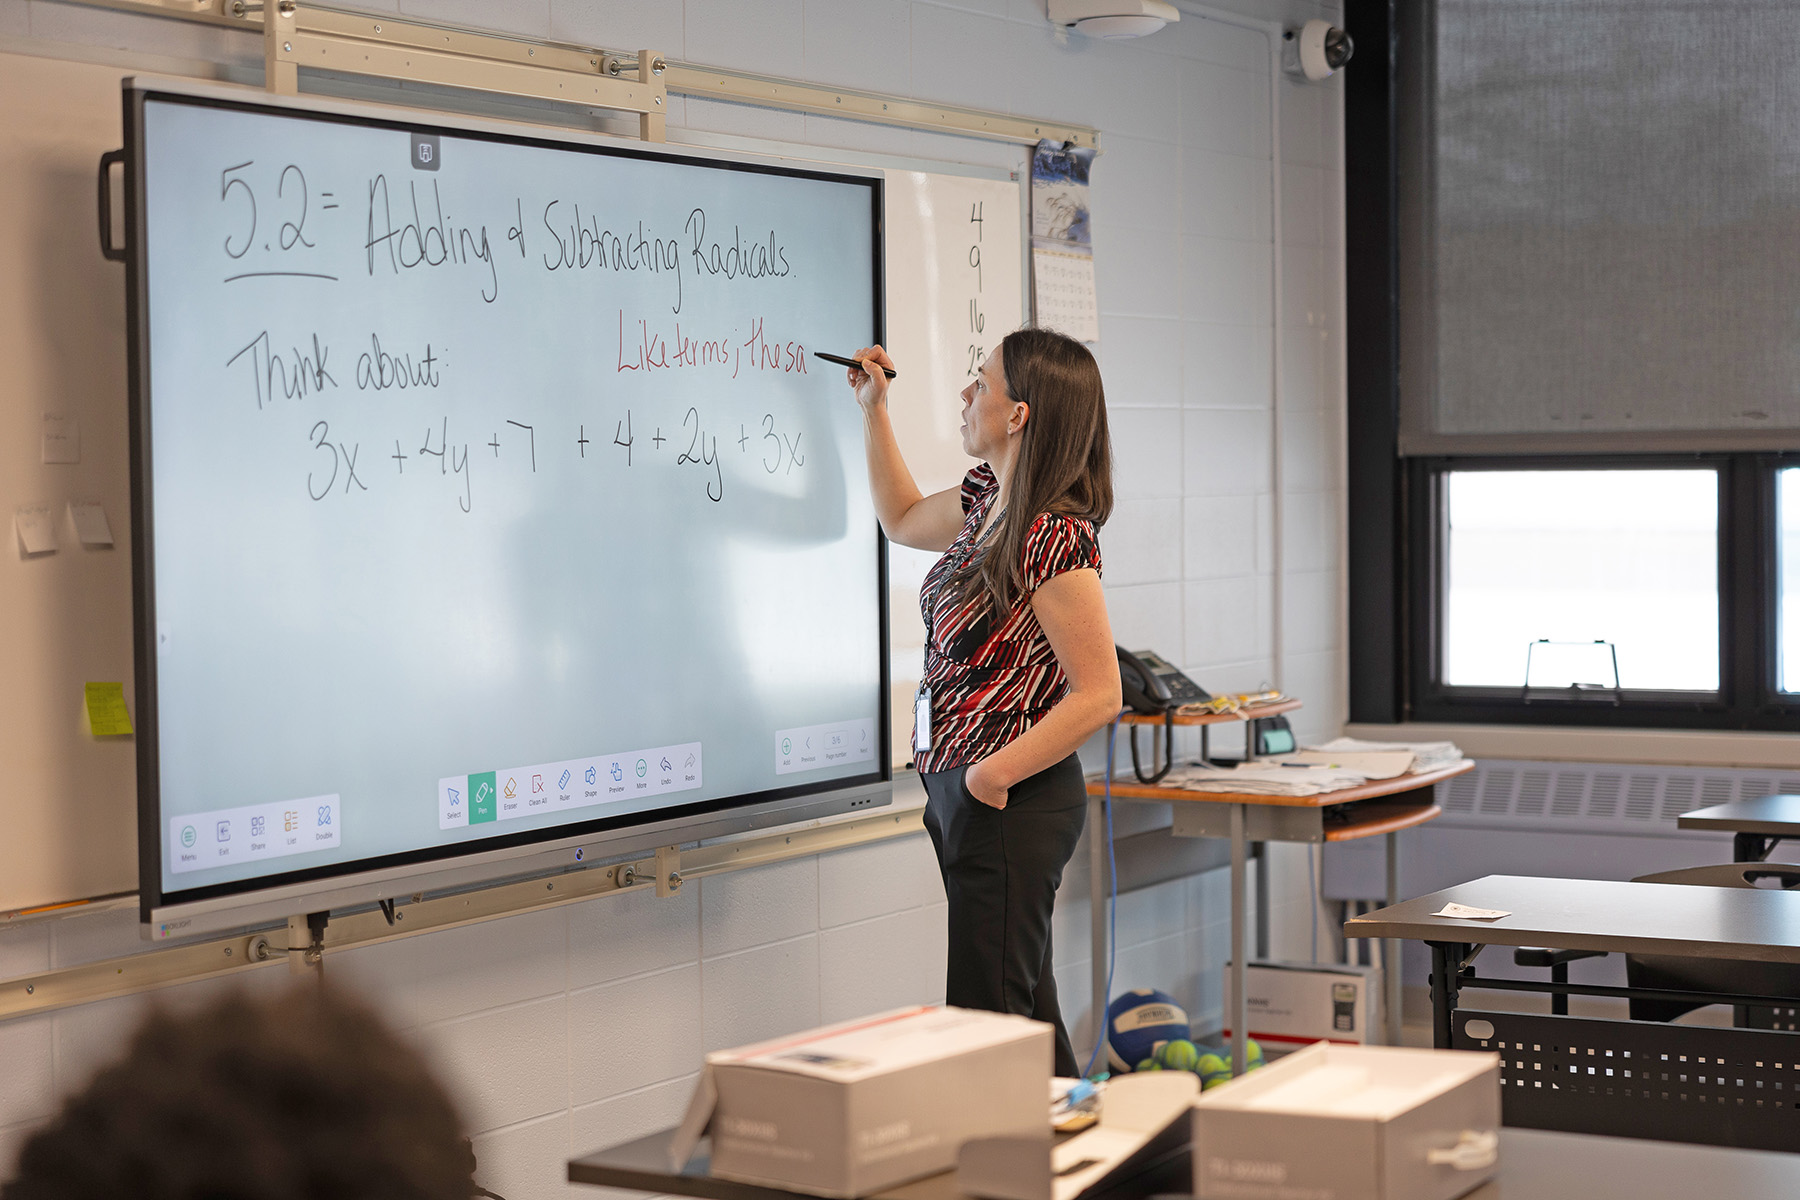 5.2= Adding & Subtracting Radicals.
Think about:
Like terms; the sa
3x + 4y + 7 + 4 + 2y + 3x
4
9
16
25
Menu
Exit
Share
List
Double
Select
Pen
Eraser
Clean All
Ruler
Shape
Preview
More
Undo
Redo
Add
Previous
Page number
Next